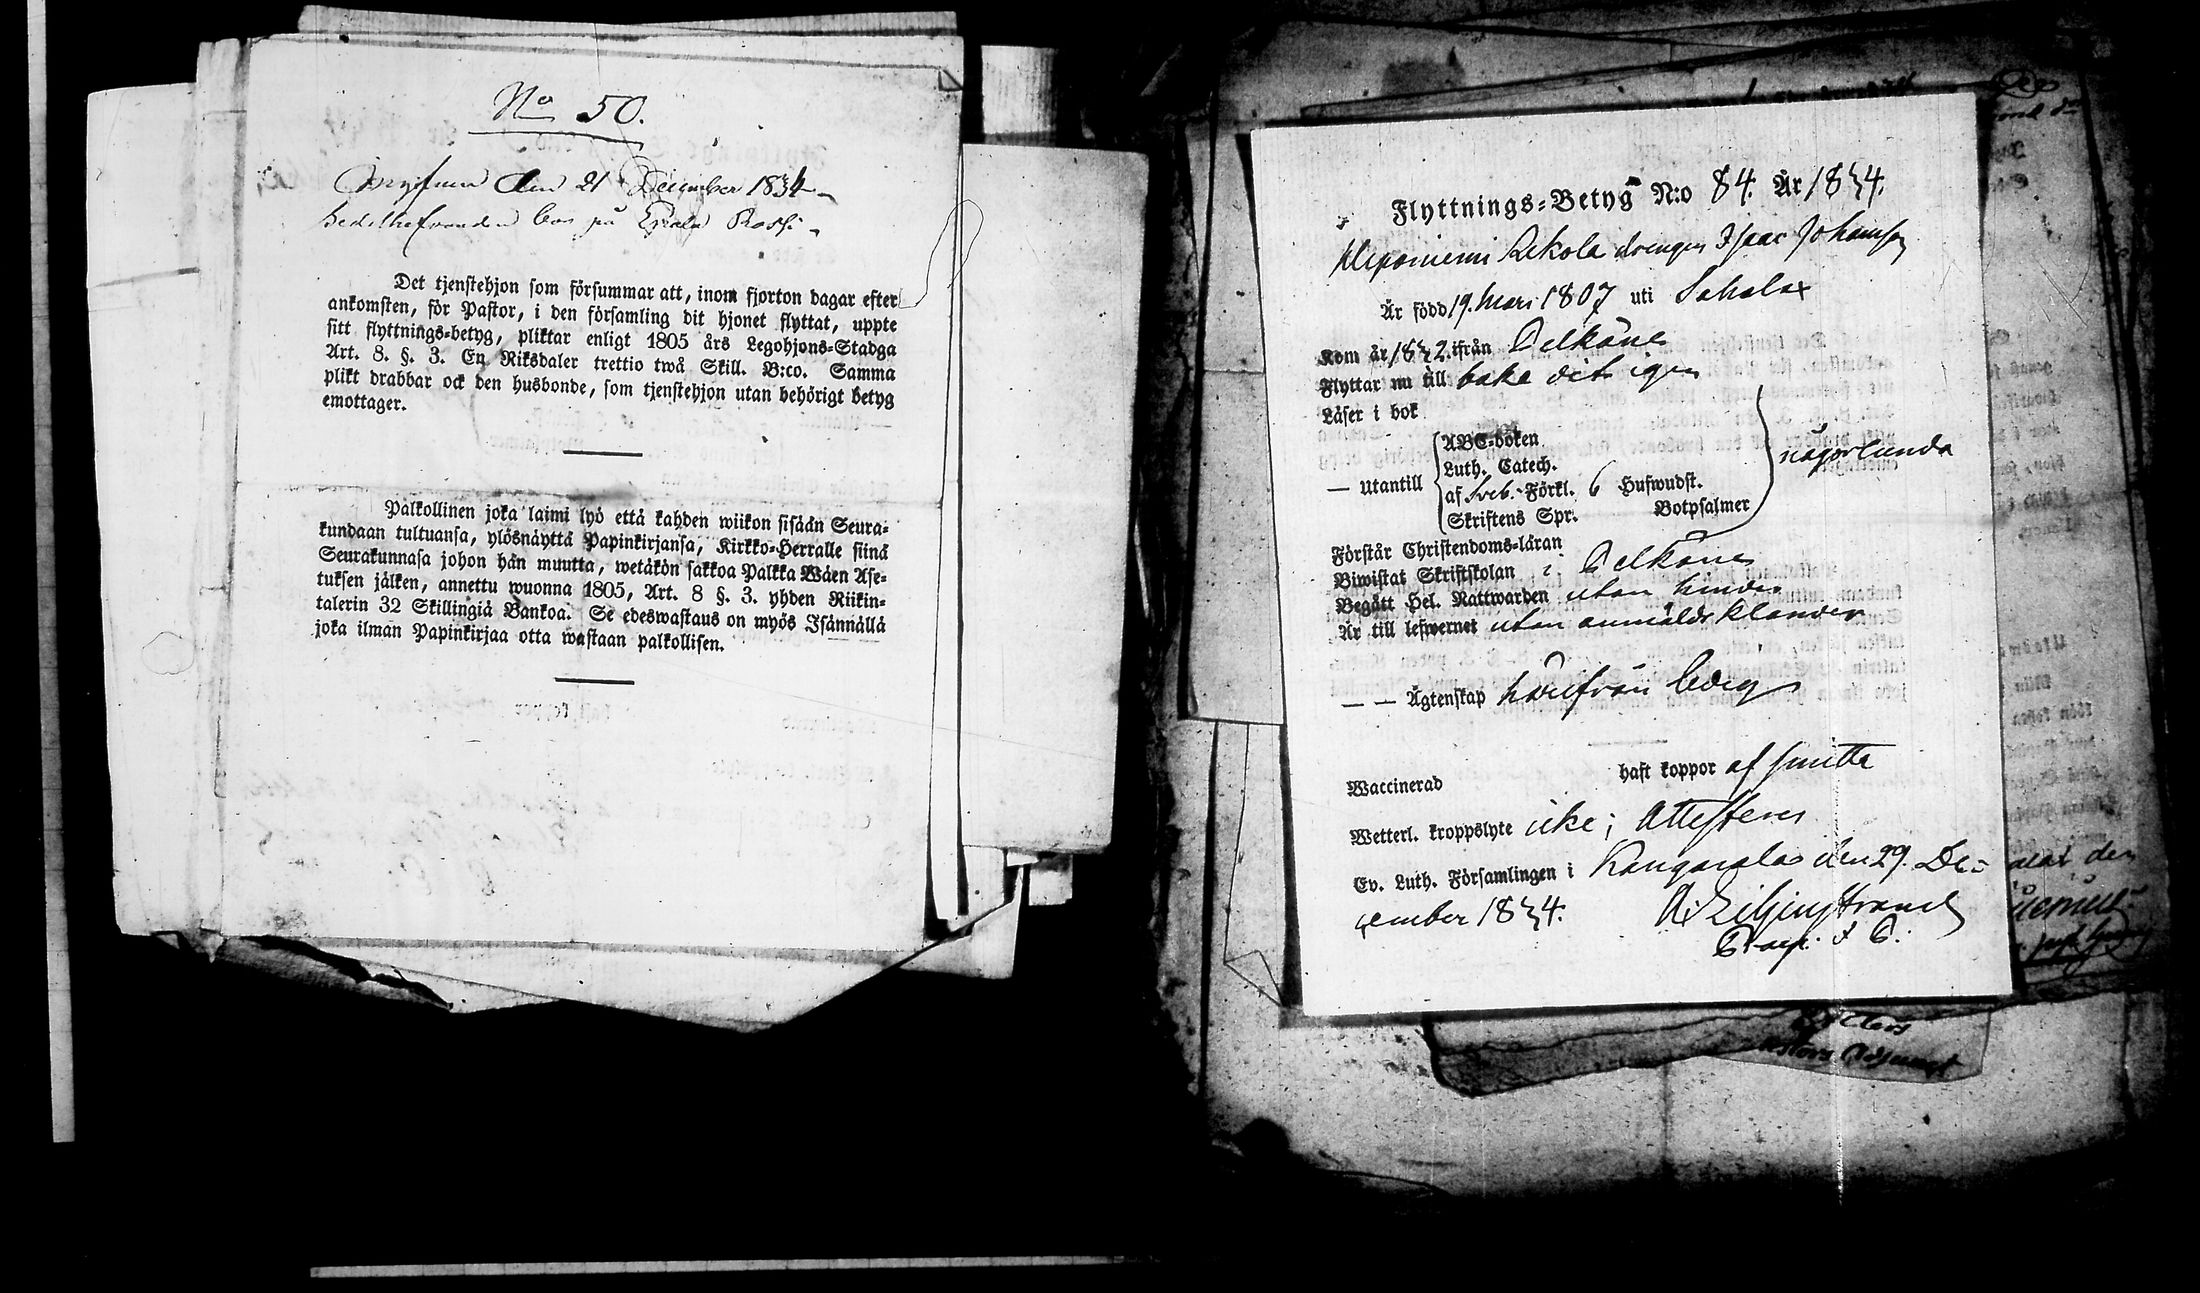 No 50.
den 21 December 1834
på Erola Rossi
Det tjenstehjon som försummar att, inom fjorton dagar efter
ankomsten, för Pastor, i den församling dit hjonet flyttat, uppte
sitt flyttnings-betyg, pliktar enligt 1805 års Legohjons-Stadga
Art. 8. §. 3. En Riksdaler trettio twå Skill. B:co. Samma
plikt drabbar ock den husbonde, som tjenstehjon utan behörigt betyg
emottager.
Palkollinen joka laimi lyö että kahden wiikon sisään Seura-
kundaan tultuansa, ylösnäyttä Papinkirjansa, Kirkko-Herralle siinä
Seurakunnasa johon hän muutta, wetäkön sakkoa Palkka Wäen Ase-
tuksen jälken, annettu wuonna 1805, Art. 8 §. 3. yhden Riikin-
talerin 32 Skillingiä Bankoa. Se edeswastaus on myös Isännällä
joka ilman Papinkirjaa otta wastaan palkollisen.
Flyttnings-Betyg N:o 84. År 1834.
Reponiemi Rekola drengen Isaac Johansson
Är född 19. Mars 1807 uti Sahalax
Kom år 1832. ifrån Pelkäne
Flyttar nu till baka dit igen
Läser i bok
— Utantill
ABC-boken
Luth. Catech.
af Sveb. Förkl. 6 Hufwudst.
Skriftens Spr. Botpsalmer
någorlunda
Förstår Christendoms-läran
Biwistat Skriftskolan i Pelkäne
Begått Hel. Nattwarden utan hinder
Är till lefwernet utan anmäldt klander
— — Ägtenskap härifrån ledig
Waccinerad haft koppor af smitta
Wetterl. kroppslyte icke; Attesterar
Ev. Luth. Församlingen i Kangasala den 29. De-
cember 1834. A: Liljenstrand
Prap. & C.
Pastors Adjunct